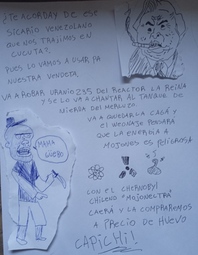 ¿TE ACORDAY DE ESE
SICARIO VENEZOLANO
QUE NOS TRAJIMOS EN
CUCUTA?
PUES LO VAMOS A USAR, PA
NUESTRA VENDETA
VA A ROBAR URANIO 235 DEL REACTOR LA REINA
Y SE LO VA A CHANTAR AL TANQUE DE
MIERDA DEL MERLUZO.
VA A QUEDAR LA CAGÁ Y
EL WEONAJE PENSARÁ
QUE LA ENERGÍA A
MOJONES ES PELIGROSA
MAMA
GÜEBO
CON EL CHERNOBYL
CHILENO "MOJONELTRA"
CAERÁ Y LA COMPRAREMOS
A PRECIO DE HUEVO
CAPICHI!